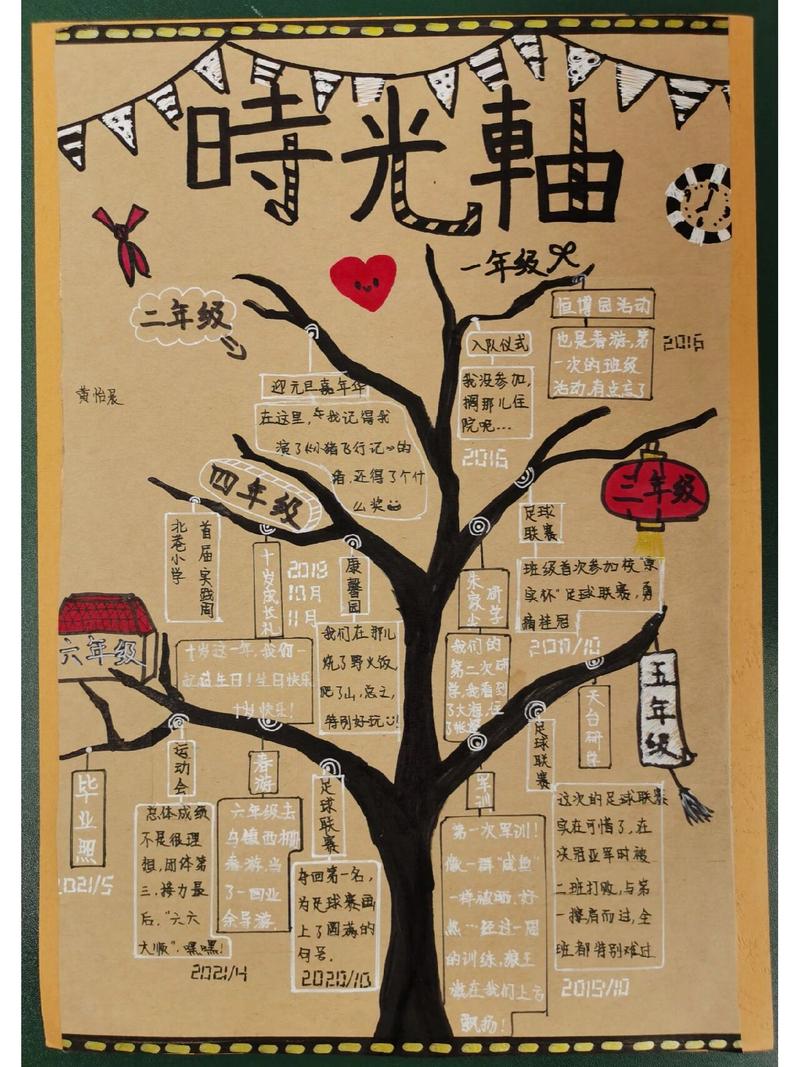 時光軸
一年级
恒博园活动
也是春游,第
一次的班级
活动,有点忘了
2016
入队仪式
我没参加,
搁那儿住
院呢...
2016
二年级
黄怡晨
迎元旦嘉年华
在这里,我记得我
演了《小猪飞行记》的
猪,还得了个什
么奖
三年级
足球
联赛
班级首次参加校“京
实杯”足球联赛,勇
摘桂冠
2017/10
朱家尖
研学
我们的
第二次研
学,我看到
了大海,住
了帐篷
四年级
首届实践周
北苍小学
十岁成长礼
2018
10月
11月
十岁这一年,我们一
起过生日!生日快乐
十岁快乐!
康馨园
我们在那儿
烧了野火饭,
爬了山,总之,
特别好玩
五年级
天台研学
足球联赛
这次的足球联赛
实在可惜了,在
决冠亚军时被
二班打败,与第
一擦肩而过,全
班都特别难过
2019/10
军训
第一次军训!
像一群“咸鱼”
一样被晒,好
热…经过一周
的训练,
在我们上方
飘扬!
六年级
毕业照
2021/5
运动会
总体成绩
不是很理
想,团体第
三,接力最
后,“六六
大顺”,嘿嘿!
2021/4
春游
六年级去
乌镇西栅
春游,当
了一回业
余导游.
足球联赛
夺回第一名,
为足球赛画
上了圆满的
句号.
2020/10